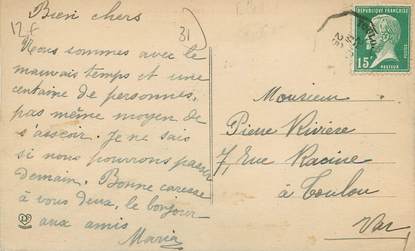 Bien chers
12 F
31
Nous sommes avec le
mauvais temps et une
centaine de personnes,
pas même moyen de
s'asseoir. Je ne sais
si nous pourrons passer
Demain. Bonne caresse
à vous deux, le bonjour
aux amis
Maria
RÉPUBLIQUE FRANÇAISE
15
PASTEUR
Monsieur
Pierre Rivière
7, Rue Racine
à Toulon
Var